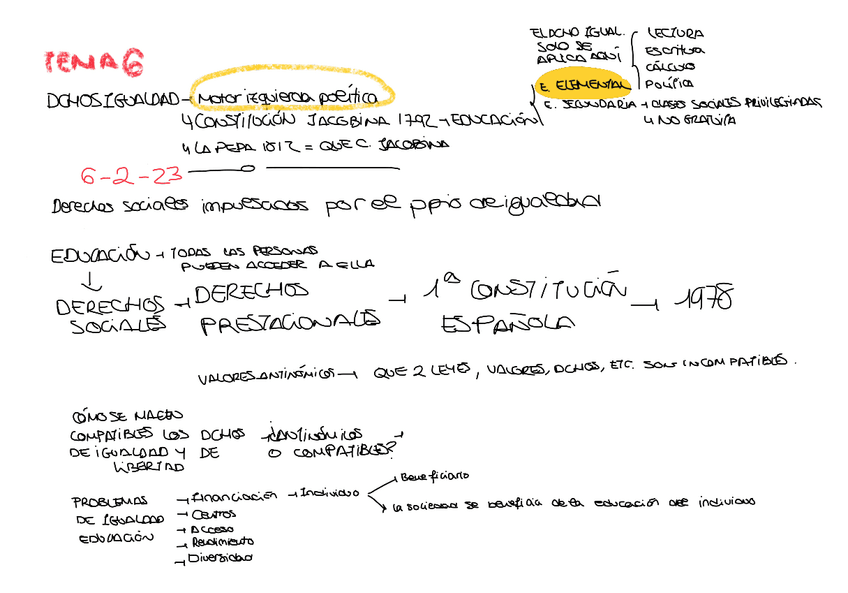 TEMA 6
DCHOS IGUALDAD → Motor izquierda política
↳ CONSTITUCIÓN JACOBINA 1792 → EDUCACIÓN
↳ LA PEPA 1812 = QUE C. JACOBINA
EL DCHO IGUAL.
SOLO SE
APLICA AQUÍ
LECTURA
ESCRITURA
CÁLCULO
POLÍTICA
E. ELEMENTAL
E. SECUNDARIA → CLASES SOCIALES PRIVILEGIADAS
↳ NO GRATUITA
6-2-23
Derechos sociales impulsados por el ppio de igualdad
EDUCACIÓN → TODAS LAS PERSONAS
PUEDEN ACCEDER A ELLA
↓
DERECHOS SOCIALES → DERECHOS PRESTACIONALES → 1ª CONSTITUCIÓN ESPAÑOLA → 1978
VALORES ANTINÓMICOS → QUE 2 LEYES, VALORES, DCHOS, ETC. SON INCOMPATIBLES.
CÓMO SE HACEN
COMPATIBLES LOS DCHOS → ¿ANTINÓMICOS →
DE IGUALDAD Y DE O COMPATIBLES?
LIBERTAD
PROBLEMAS
DE IGUALDAD
EDUCACIÓN
→ Financiación → Individuo
→ Beneficiario
→ La sociedad se beneficia de la educación del individuo
→ Centros
→ Acceso
→ Rendimiento
→ Diversidad